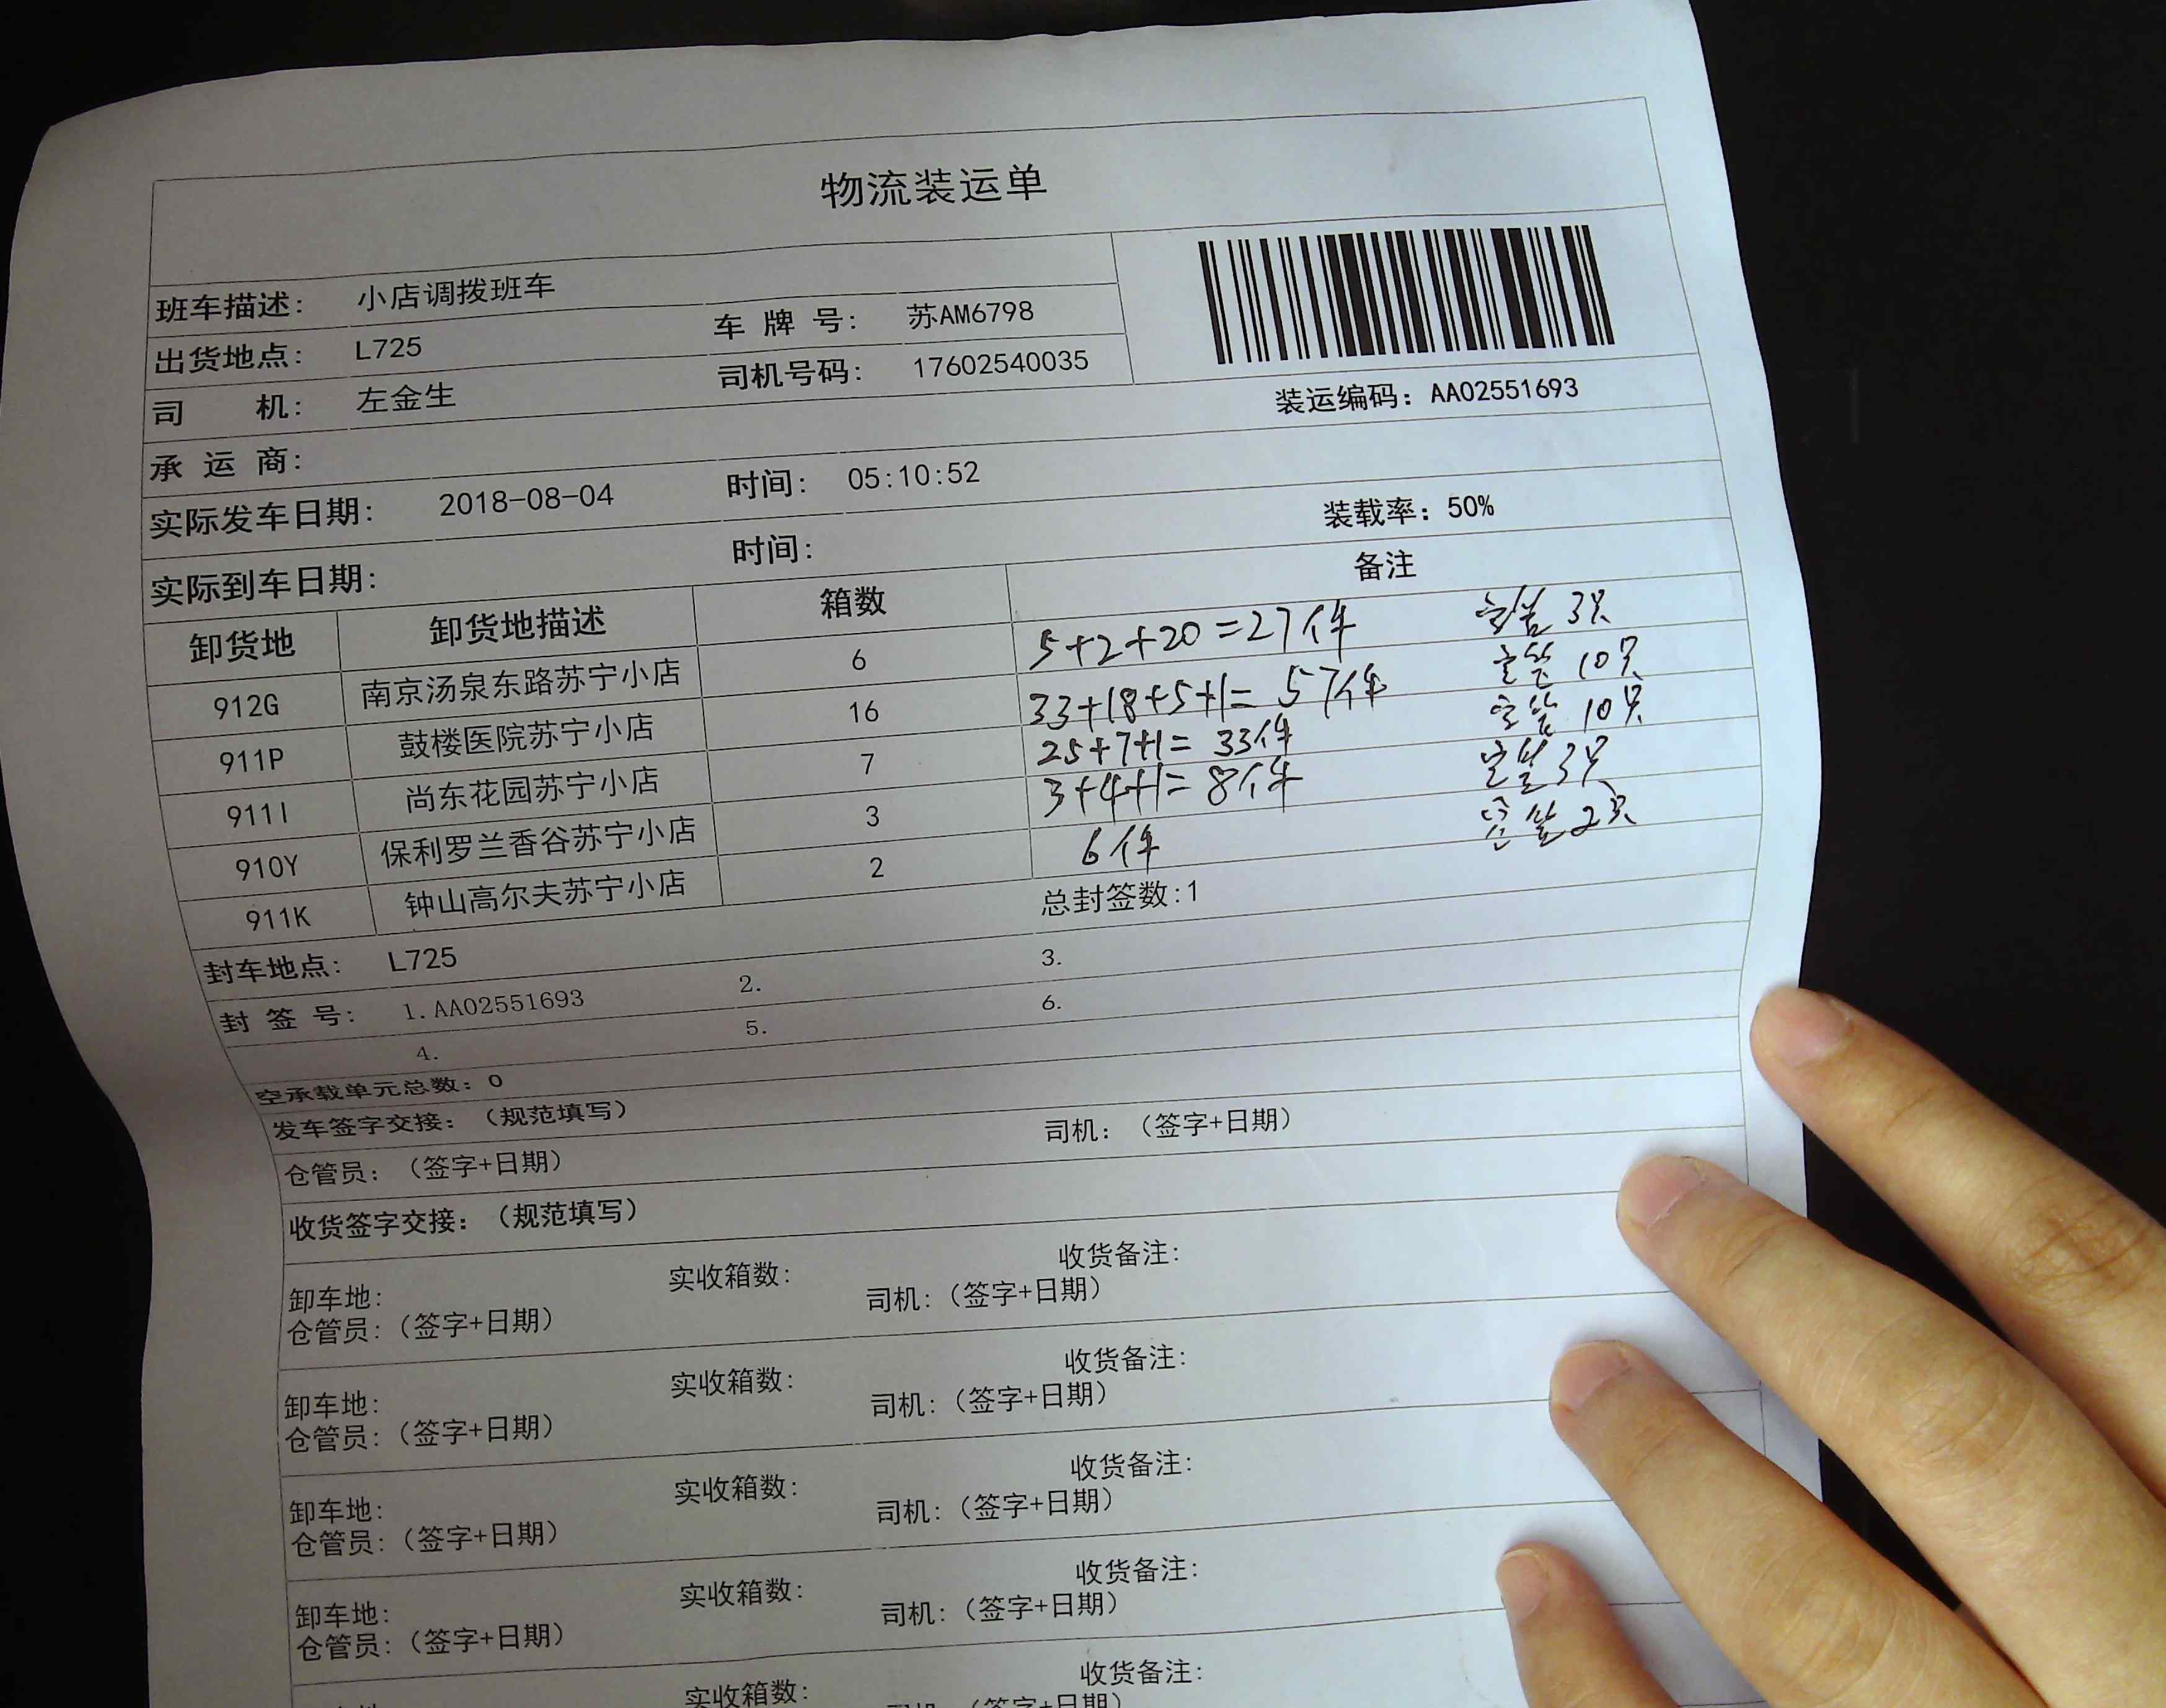 物流装运单
班车描述: 小店调拨班车
出货地点: L725 车 牌 号: 苏AM6798
司 机: 左金生 司机号码: 17602540035
装运编码: AA02551693
承 运 商:
实际发车日期: 2018-08-04 时间: 05:10:52
实际到车日期: 时间: 装载率: 50%
卸货地 卸货地描述 箱数 备注
912G 南京汤泉东路苏宁小店 6 5+2+20=27件 3只
911P 鼓楼医院苏宁小店 16 33+18+5+1=57件 10只
911I 尚东花园苏宁小店 7 25+7+1=33件 10只
910Y 保利罗兰香谷苏宁小店 3 3+4+1=8件 3只
911K 钟山高尔夫苏宁小店 2 6件 2只
封车地点: L725 总封签数:1
封 签 号: 1.AA02551693 2. 3.
4. 5. 6.
空承载单元总数: 0
发车签字交接: (规范填写)
仓管员: (签字+日期) 司机: (签字+日期)
收货签字交接: (规范填写)
卸车地: 实收箱数: 收货备注:
仓管员:(签字+日期) 司机:(签字+日期)
卸车地: 实收箱数: 收货备注:
仓管员:(签字+日期) 司机:(签字+日期)
卸车地: 实收箱数: 收货备注:
仓管员:(签字+日期) 司机:(签字+日期)
卸车地: 实收箱数: 收货备注:
仓管员:(签字+日期) 司机:(签字+日期)
实收箱数: 收货备注: